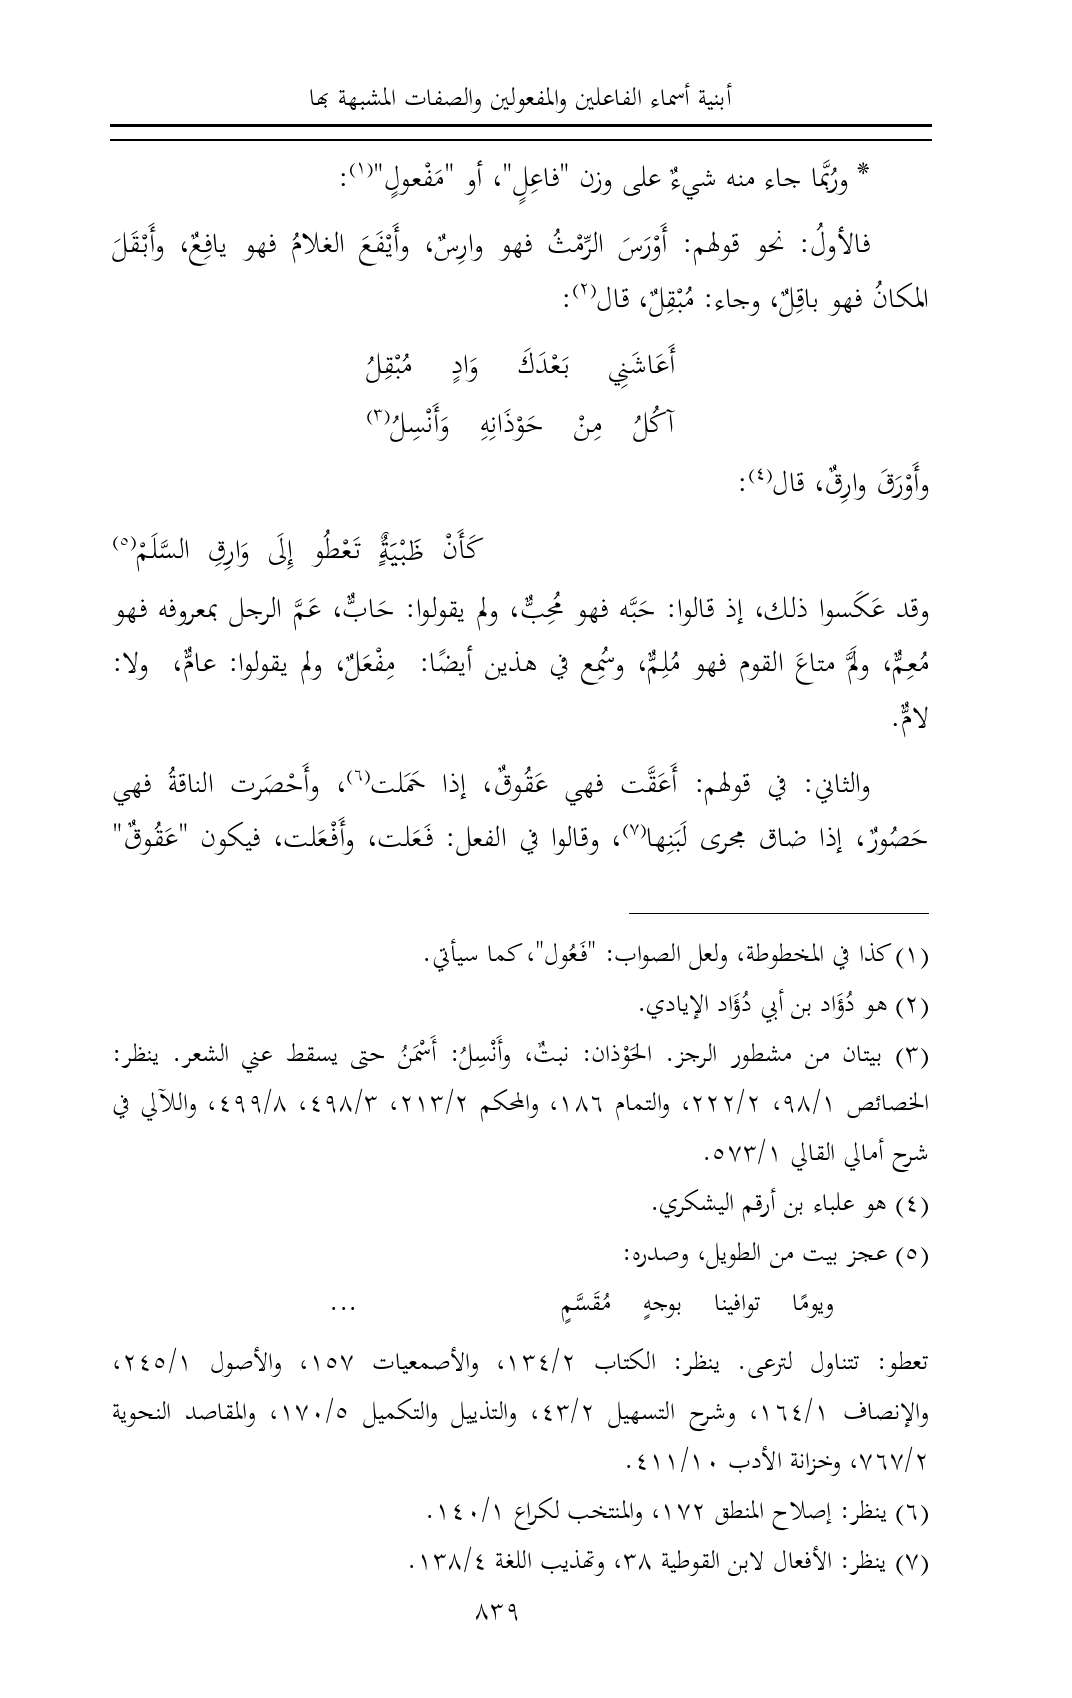 أبنية أسماء الفاعلين والمفعولين والصفات المشبهة بها
* ورُبَّما جاء منه شيءٌ على وزن "فاعِلٍ"، أو "مَفْعولٍ"(١):
فالأولُ: نحو قولهم: أَوْرَسَ الرِّمْثُ فهو وارِسٌ، وأَيْفَعَ الغلامُ فهو يافِعٌ، وأَبْقَلَ
المكانُ فهو باقِلٌ، وجاء: مُبْقِلٌ، قال(٢):
أَعَاشَنِي بَعْدَكَ وَادٍ مُبْقِلُ
آكُلُ مِنْ حَوْذَانِهِ وَأَنْسِلُ(٣)
وأَوْرَقَ وارِقٌ، قال(٤):
كَأَنْ ظَبْيَةٌٍ تَعْطُو إِلَى وَارِقِ السَّلَمْ(٥)
وقد عَكَسوا ذلك، إذ قالوا: حَبَّه فهو مُحِبٌّ، ولم يقولوا: حَابٌّ، عَمَّ الرجل بمعروفه فهو
مُعِمٌّ، ولَمَّ متاعَ القوم فهو مُلِمٌّ، وسُمِع في هذين أيضًا: مِفْعَلٌ، ولم يقولوا: عامٌّ، ولا:
لامٌّ.
والثاني: في قولهم: أَعَقَّت فهي عَقُوقٌ، إذا حَمَلت(٦)، وأَحْصَرت الناقةُ فهي
حَصُورٌ، إذا ضاق مجرى لَبَنِها(٧)، وقالوا في الفعل: فَعَلت، وأَفْعَلت، فيكون "عَقُوقٌ"
(١) كذا في المخطوطة، ولعل الصواب: "فَعُول"، كما سيأتي.
(٢) هو دُؤَاد بن أبي دُؤَاد الإيادي.
(٣) بيتان من مشطور الرجز. الحَوْذان: نبتٌ، وأَنْسِلُ: أَسْمَنُ حتى يسقط عني الشعر. ينظر:
الخصائص ٩٨/١، ٢٢٢/٢، والتمام ١٨٦، والمحكم ٢١٣/٢، ٤٩٨/٣، ٤٩٩/٨، واللآلي في
شرح أمالي القالي ٥٧٣/١.
(٤) هو علباء بن أرقم اليشكري.
(٥) عجز بيت من الطويل، وصدره:
ويومًا توافينا بوجهٍ مُقَسَّمٍ ...
تعطو: تتناول لترعى. ينظر: الكتاب ١٣٤/٢، والأصمعيات ١٥٧، والأصول ٢٤٥/١،
والإنصاف ١٦٤/١، وشرح التسهيل ٤٣/٢، والتذييل والتكميل ١٧٠/٥، والمقاصد النحوية
٧٦٧/٢، وخزانة الأدب ٤١١/١٠.
(٦) ينظر: إصلاح المنطق ١٧٢، والمنتخب لكراع ١٤٠/١.
(٧) ينظر: الأفعال لابن القوطية ٣٨، وتهذيب اللغة ١٣٨/٤.
٨٣٩